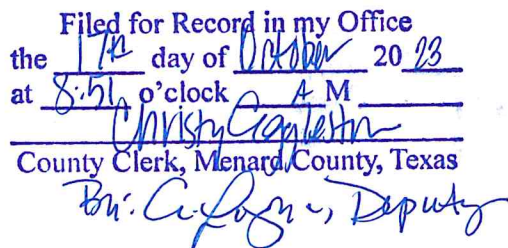 Filed for Record in my Office
the 17th day of October 20 23
at 8:51 o'clock A M
Christy Eggleston
County Clerk, Menard County, Texas
By: Deputy